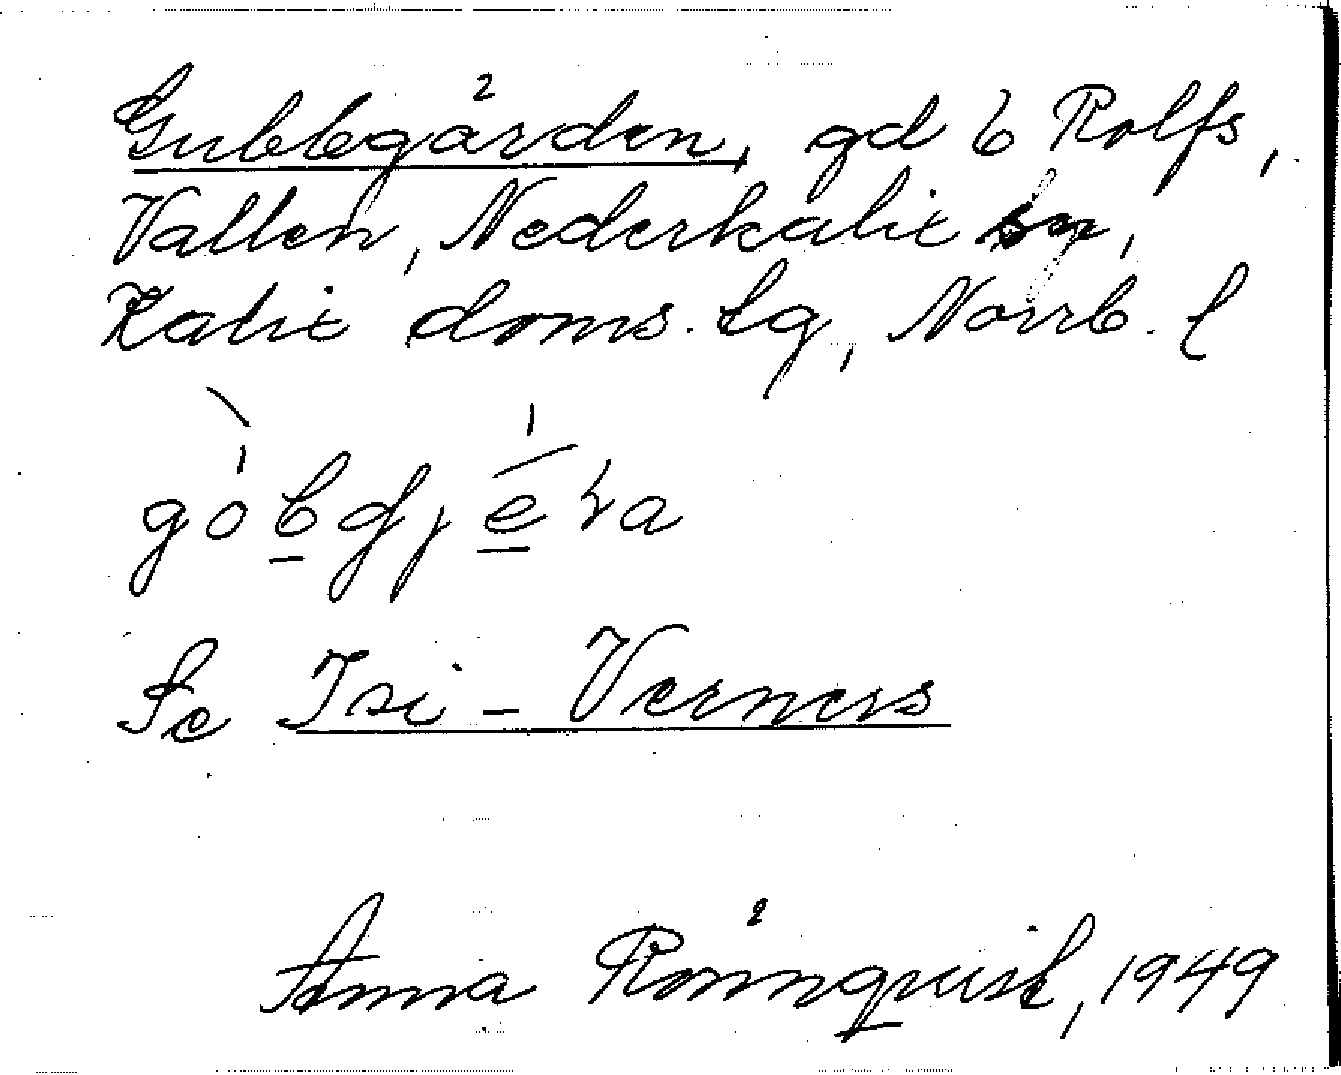 Gubbgården, gd i Rolfs,
Vallen, Nederkalix sn,
Kalix doms. lg, Norrb. l
gòbgjéra
Se Isi - Verners
Anna Rönnquist, 1949